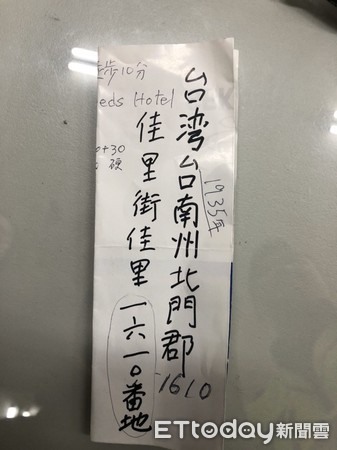 台湾台南州北門郡
佳里街佳里一六一〇番地
1935年
1610
步10分
eds Hotel
+30
硬
ETtoday新聞雲